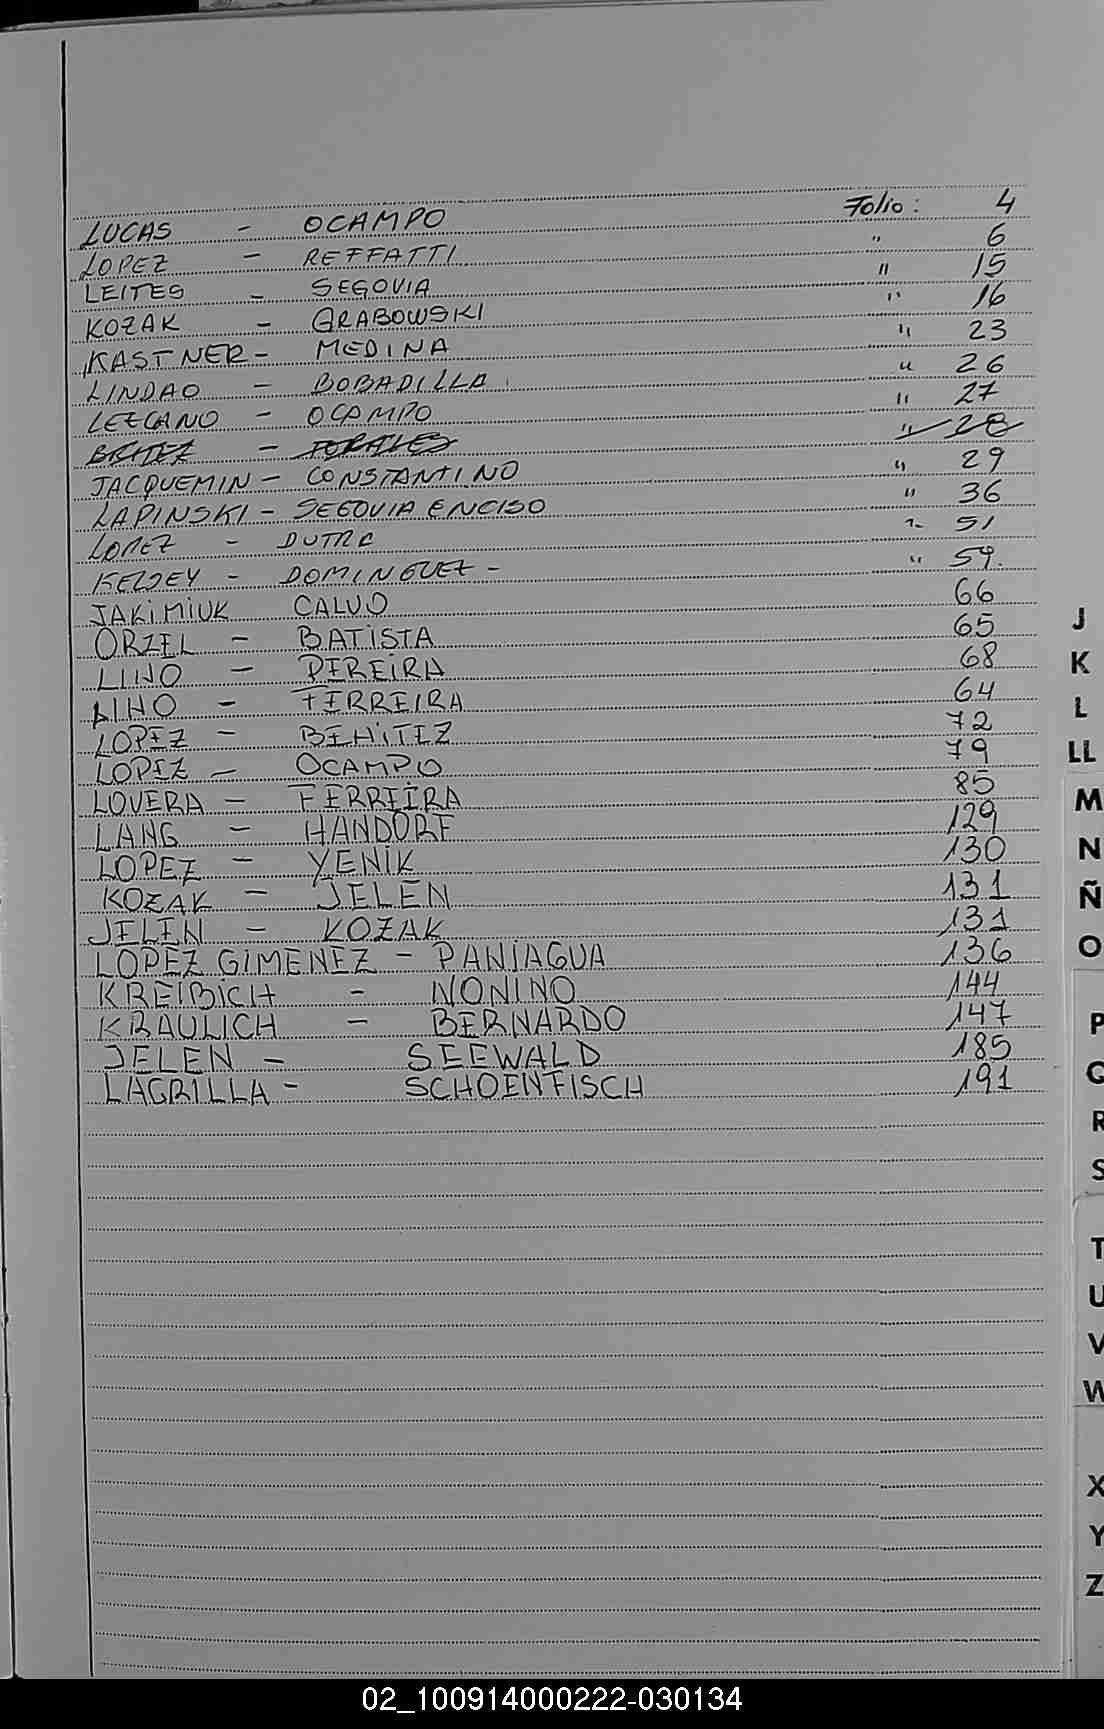 LUCAS - OCAMPO Folio: 4
LOPEZ - REFFATTI " 6
LEITES - SEGOVIA " 15
KOZAK - GRABOWSKI " 16
KASTNER - MEDINA " 23
LINDAO - BOBADILLA " 26
LEZCANO - OCAMPO " 27
BRITEZ - " 28
JACQUEMIN - CONSTANTINO " 29
LAPINSKI - SEGOVIA ENCISO " 36
LOPEZ - DUTRA " 51
KELSEY - DOMINGUEZ - " 59.
JAKIMIUK CALVO 66
ORZEL - BATISTA 65
LINO - PEREIRA 68
LINO - FERREIRA 64
LOPEZ - BENITEZ 72
LOPEZ - OCAMPO 79
LOVERA - FERREIRA 85
LANG - HANDORF 129
LOPEZ - YENIK 130
KOZAK - JELEN 131
JELEN - KOZAK 131
LOPEZ GIMENEZ - PANIAGUA 136
KREIBICH - NONINO 144
KRAULICH - BERNARDO 147
JELEN - SEEWALD 185
LAGRILLA - SCHOENFISCH 191
J
K
L
LL
M
N
Ñ
O
P
Q
R
S
T
U
V
W
X
Y
Z
02_100914000222-030134